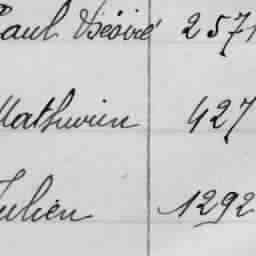 Paul Désiré 2571
Mathurin 427
Julien 1292